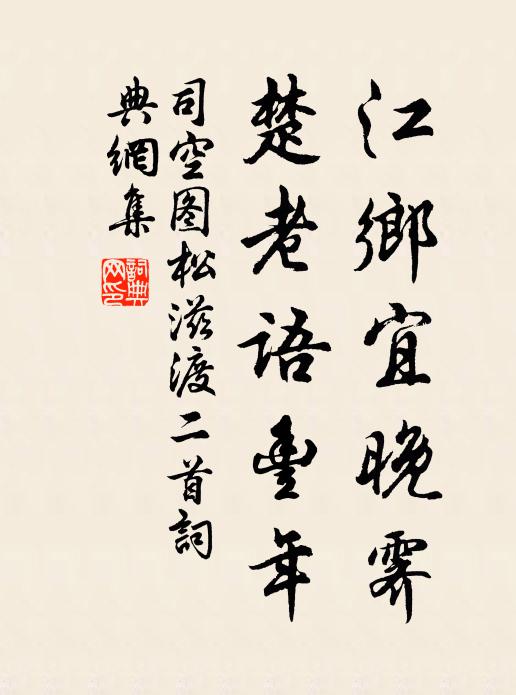 江鄉宜晚霽
楚老語豐年
司空图松滋渡二首詞
典網集
詞典
网印